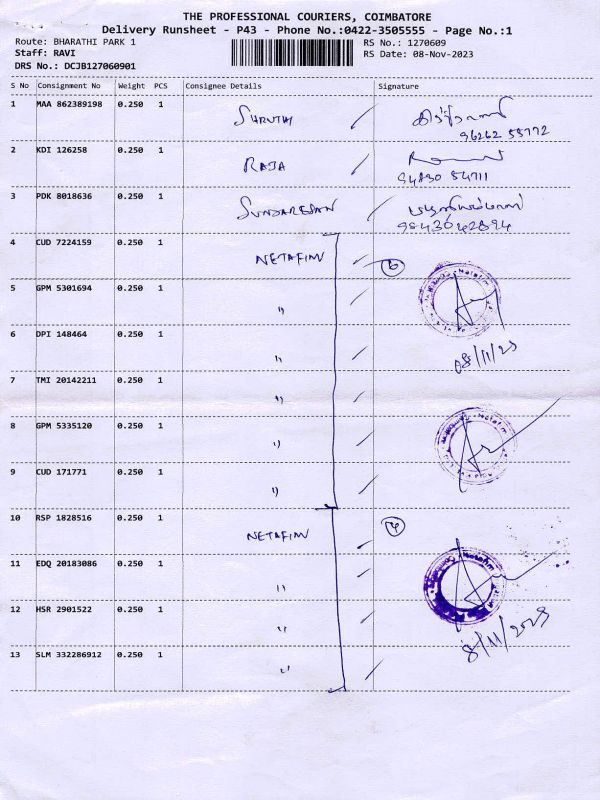 THE PROFESSIONAL COURIERS, COIMBATORE
Delivery Runsheet - P43 - Phone No.:0422-3505555 - Page No.:1
Route: BHARATHI PARK 1 RS No.: 1270609
Staff: RAVI RS Date: 08-Nov-2023
DRS No.: DCJB127060901
S No Consignment No Weight PCS Consignee Details Signature
1 MAA 862389198 0.250 1 SHRUTHI
96262 55772
2 KDI 126258 0.250 1 RAJA
94890 54711
3 PDK 8018636 0.250 1 SUNDARESAN
9843042894
4 CUD 7224159 0.250 1 NETAFIM 6
5 GPM 5301694 0.250 1 "
6 DPI 148464 0.250 1 " 08/11/23
7 TMI 20142211 0.250 1 "
8 GPM 5335120 0.250 1 "
9 CUD 171771 0.250 1 "
10 RSP 1828516 0.250 1 NETAFIM 4
11 EDQ 20183086 0.250 1 "
12 HSR 2901522 0.250 1 " 8/11/2023
13 SLM 332286912 0.250 1 "